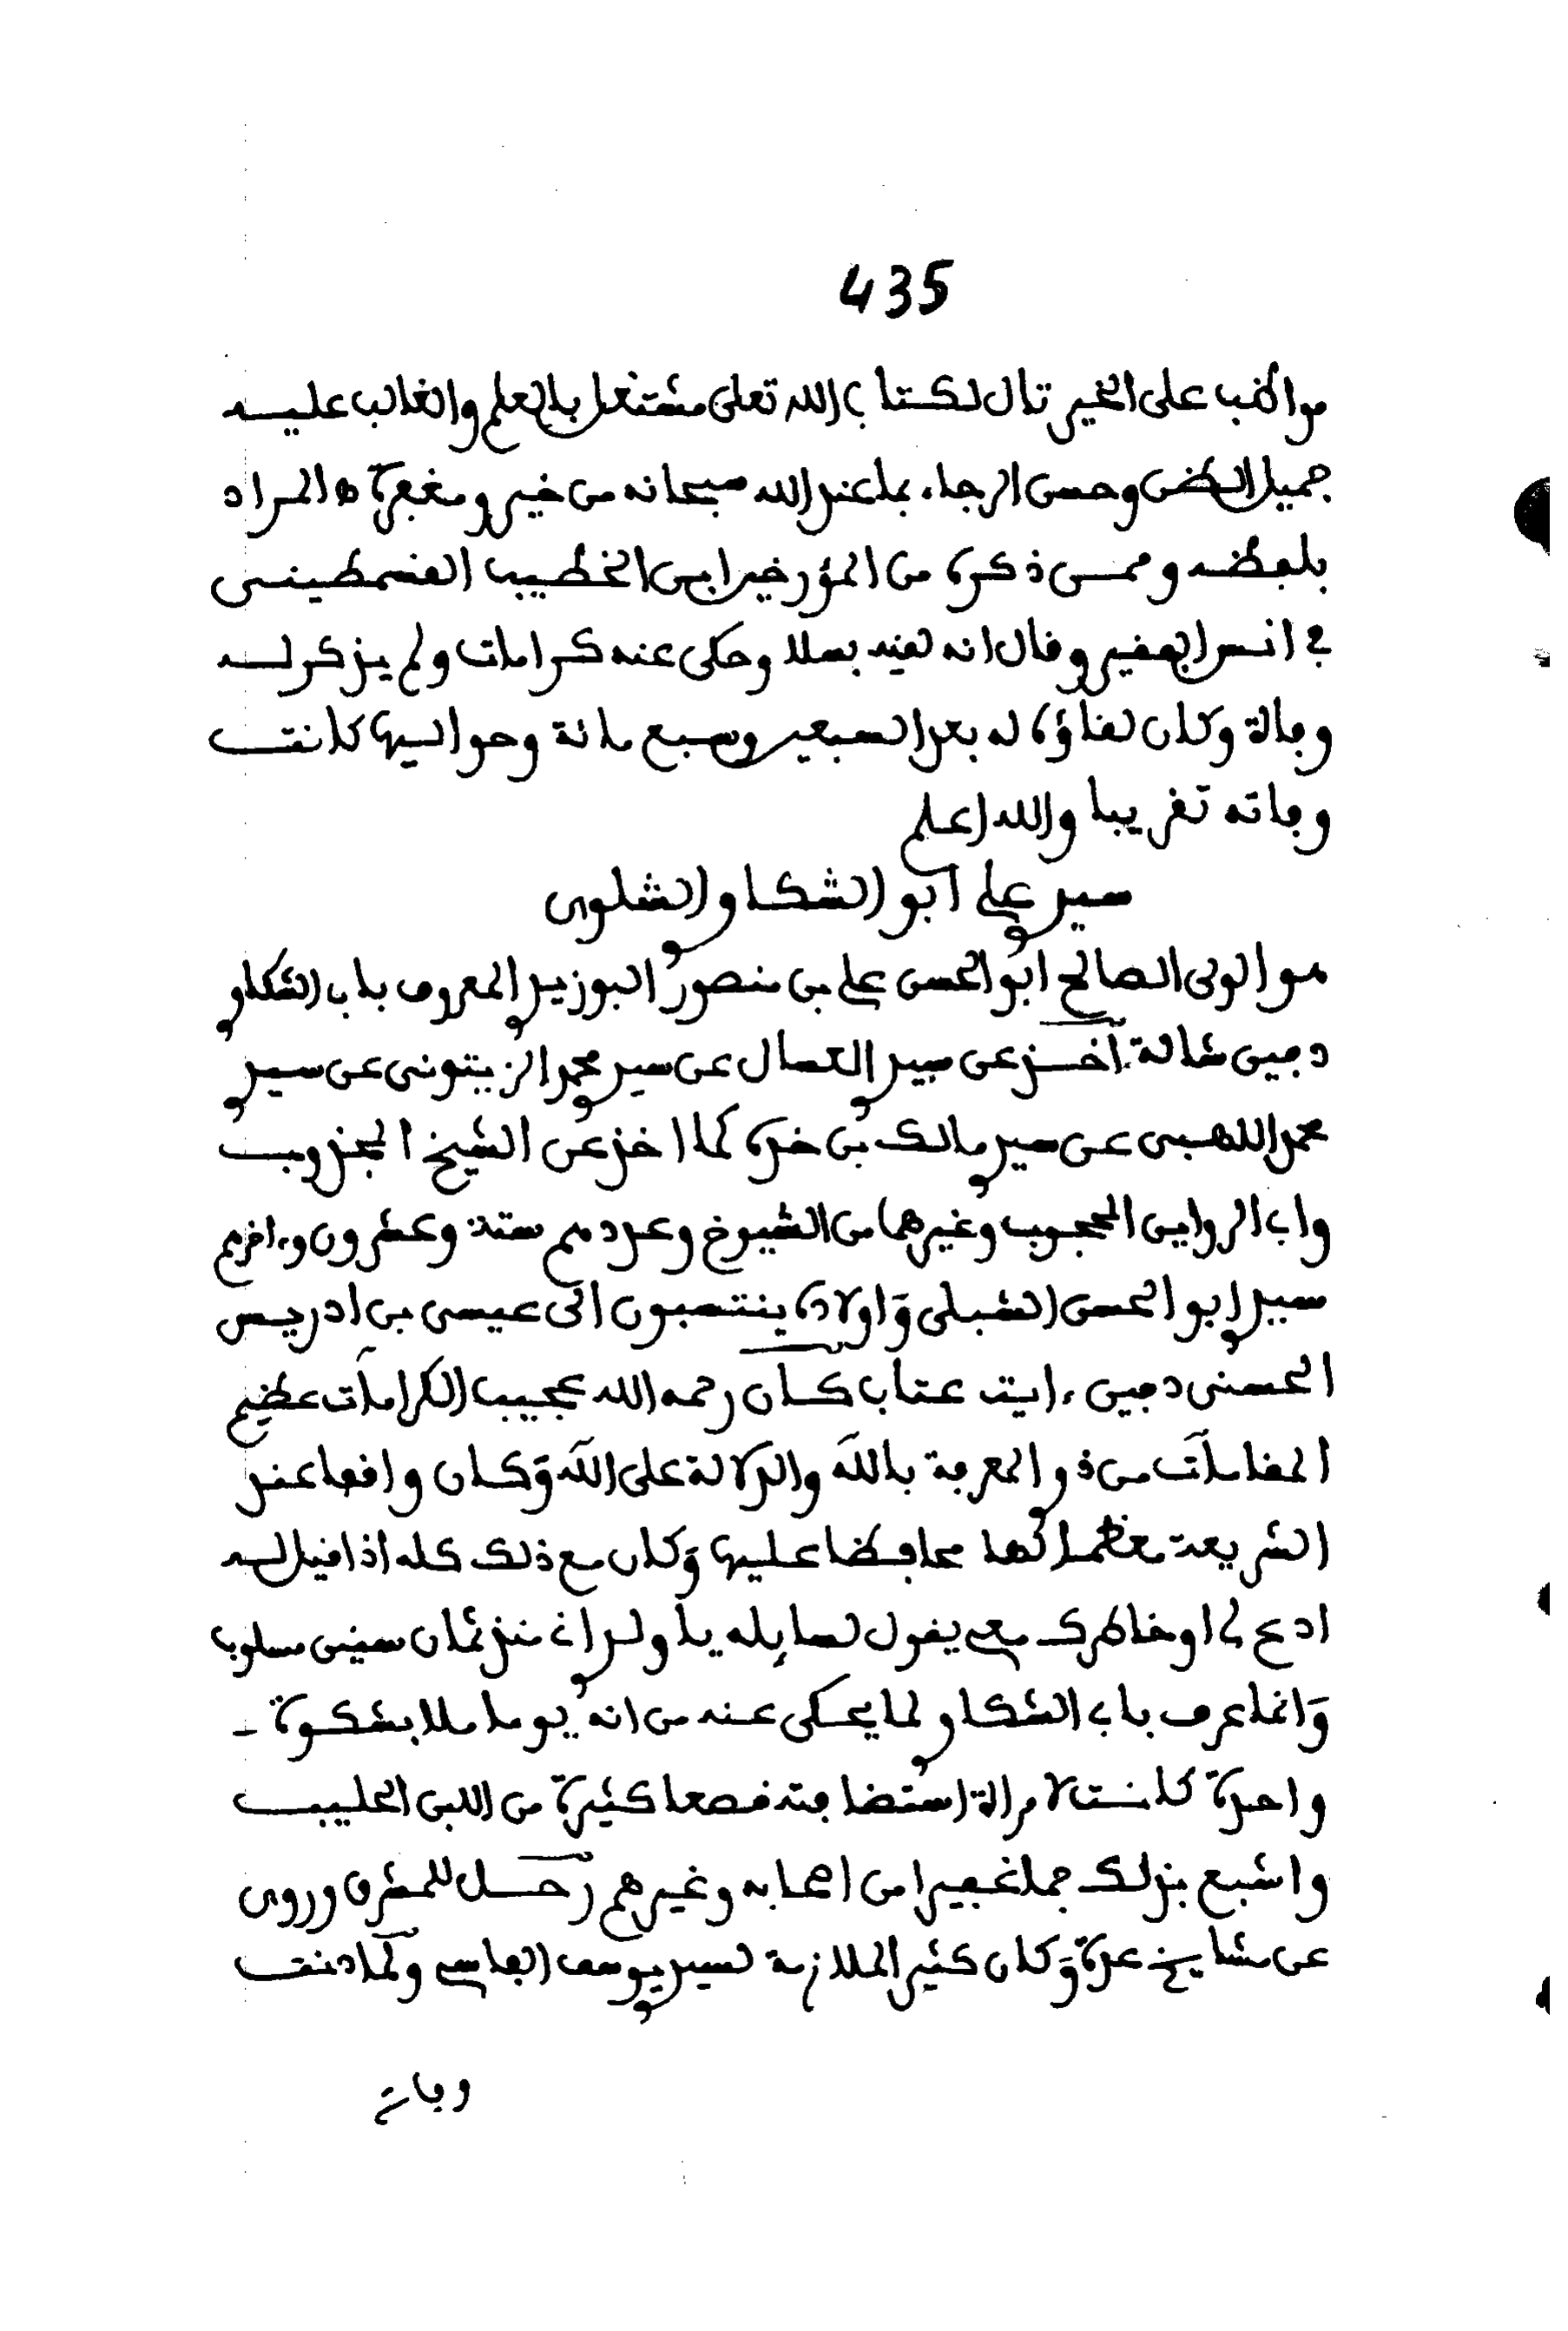 435
مواظب على الخير تال لكتاب الله تعلى مشتغل بالعلم والغالب عليه
جميل الظن وحسن الرجاء بما عند الله سبحانه من خير ومغفرة ه المراد
بلفظه وممن ذكره من المؤرخين ابن الخطيب القسمطيني
في انس الفقير وقال انه لقيه بسلا وحكى عنه كرامات ولم يذكر له
وفاة وكان لقاؤه له بعد السبعين وسبع مائة وحواليها كانت
وفاته تقريبا والله اعلم
سيدي علي أبو الشكاوي الشلوى
هو الولى الصالح ابو الحسن علي بن منصور البوزيدي المعروف باب الشكاوي
دفين شالة أخذ عن سيدي العسال عن سيدي محمد الزيتونى عن سيدي
محمد اللهبى عن سيدي مالك بن خدة كما اخذ عن الشيخ المجذوب
واب الرواين المحجوب وغيرهما من الشيوخ وعددهم ستة وعشرون وءاخرهم
سيدي ابو الحسن الشبلى وَاولاده ينتسبون الى عيسى بن ادريس
الحسنى دفين ءايت عتاب كان رحمه الله عجيب الكرامات عظيم
المقامات من ذوي المعرفة بالله والدلالة على الله وَكان واقفا عند
الشريعة معظما لها محافظا عليها وَكان مع ذلك كله اذا قيل له
ادع لى او خاطرك معي يقول لسايله يا ولدي انى منذ ثمان سنين مسلوب
وَانما عرف باب الشكاوي لما يحكى عنه من انه يوما ملا بشكوة
واحدة كانت لامراة استضافته قصعا كثيرة من اللبن الحليب
واشبع بذلك جما غفيرا من اصحابه وغيرهم رَحل للمشرق وروى
عن مشايخ عدة وَكان كثير الملازمة لسيدي يوسف الفاسي وَلما دنت
وفاته